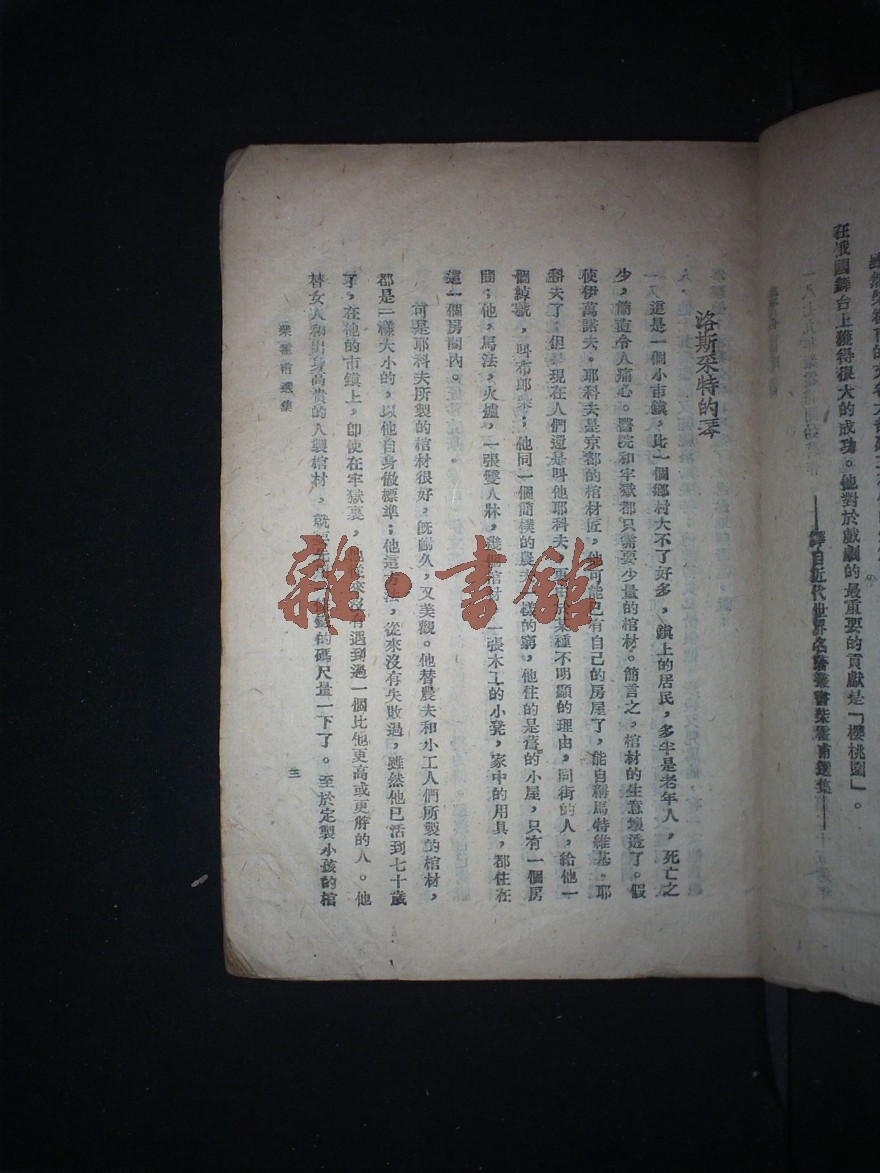 在俄國舞台上獲得很大的成功。他對於戲劇的最重要的貢獻是「櫻桃園」。
——譯自近代世界名著叢書柴霍甫選集——
洛斯采特的琴
這是一個小市鎮，比一個鄉村大不了好多，鎮上的居民，多半是老年人，死亡之
少，簡直令人痛心。醫院和牢獄都只需要少量的棺材。簡言之，棺材的生意壞透了。假
使伊萬諾夫。耶科夫是京都的棺材匠，他可能已有自己的房屋了，能自稱馬特維基。耶
科夫了；但是現在人們還是叫他耶科夫，更由於某種不明顯的理由，同街的人，給他一
個綽號，叫布郎采；他同一個簡樸的農夫一樣的窮，他住的是舊的小屋，只有一個房
間；他，馬法，火爐，一張雙人牀，幾個棺材，一張木工的小凳，家中的用具，都住在
這一個房間內。
可是耶科夫所製的棺材很好，既耐久，又美觀。他替農夫和小工人們所製的棺材，
都是一樣大小的，以他自身做標準；他這方法，從來沒有失敗過，雖然他已活到七十歲
了，在他的市鎮上，卽使在牢獄裏，他從來沒有遇到過一個比他更高或更胖的人。他
替女人和出身高貴的人製棺材，就要先用的碼尺量一下了。至於定製小孩的棺
柴霍甫選集
三
雜·書館